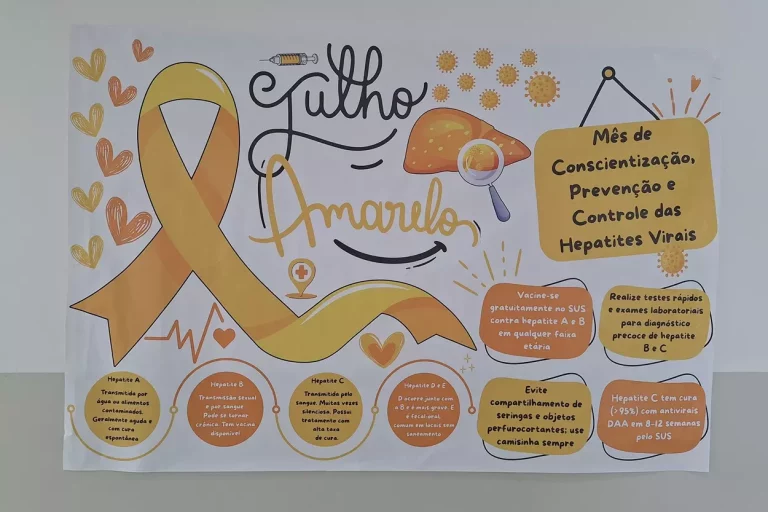 Julho
Amarelo
Mês de
Conscientização,
Prevenção e
Controle das
Hepatites Virais
Vacine-se
gratuitamente no SUS
contra hepatite A e B
em qualquer faixa
etária
Realize testes rápidos
e exames laboratoriais
para diagnóstico
precoce de hepatite
B e C
Hepatite A
Transmitida por
água ou alimentos
contaminados.
Geralmente aguda e
com cura
espontânea
Hepatite B
Transmissão sexual
e por sangue
Pode se tornar
crônica. Tem vacina
disponível
Hepatite C
Transmitida pelo
sangue. Muitas vezes
silenciosa. Possui
tratamento com
alta taxa
de cura.
Hepatite D e E
D ocorre junto com
a B e é mais grave. E
é fecal-oral,
comum em locais sem
saneamento
Evite
compartilhamento de
seringas e objetos
perfurocortantes; use
camisinha sempre
Hepatite C tem cura
(>95%) com antivirais
DAA em 8-12 semanas
pelo SUS